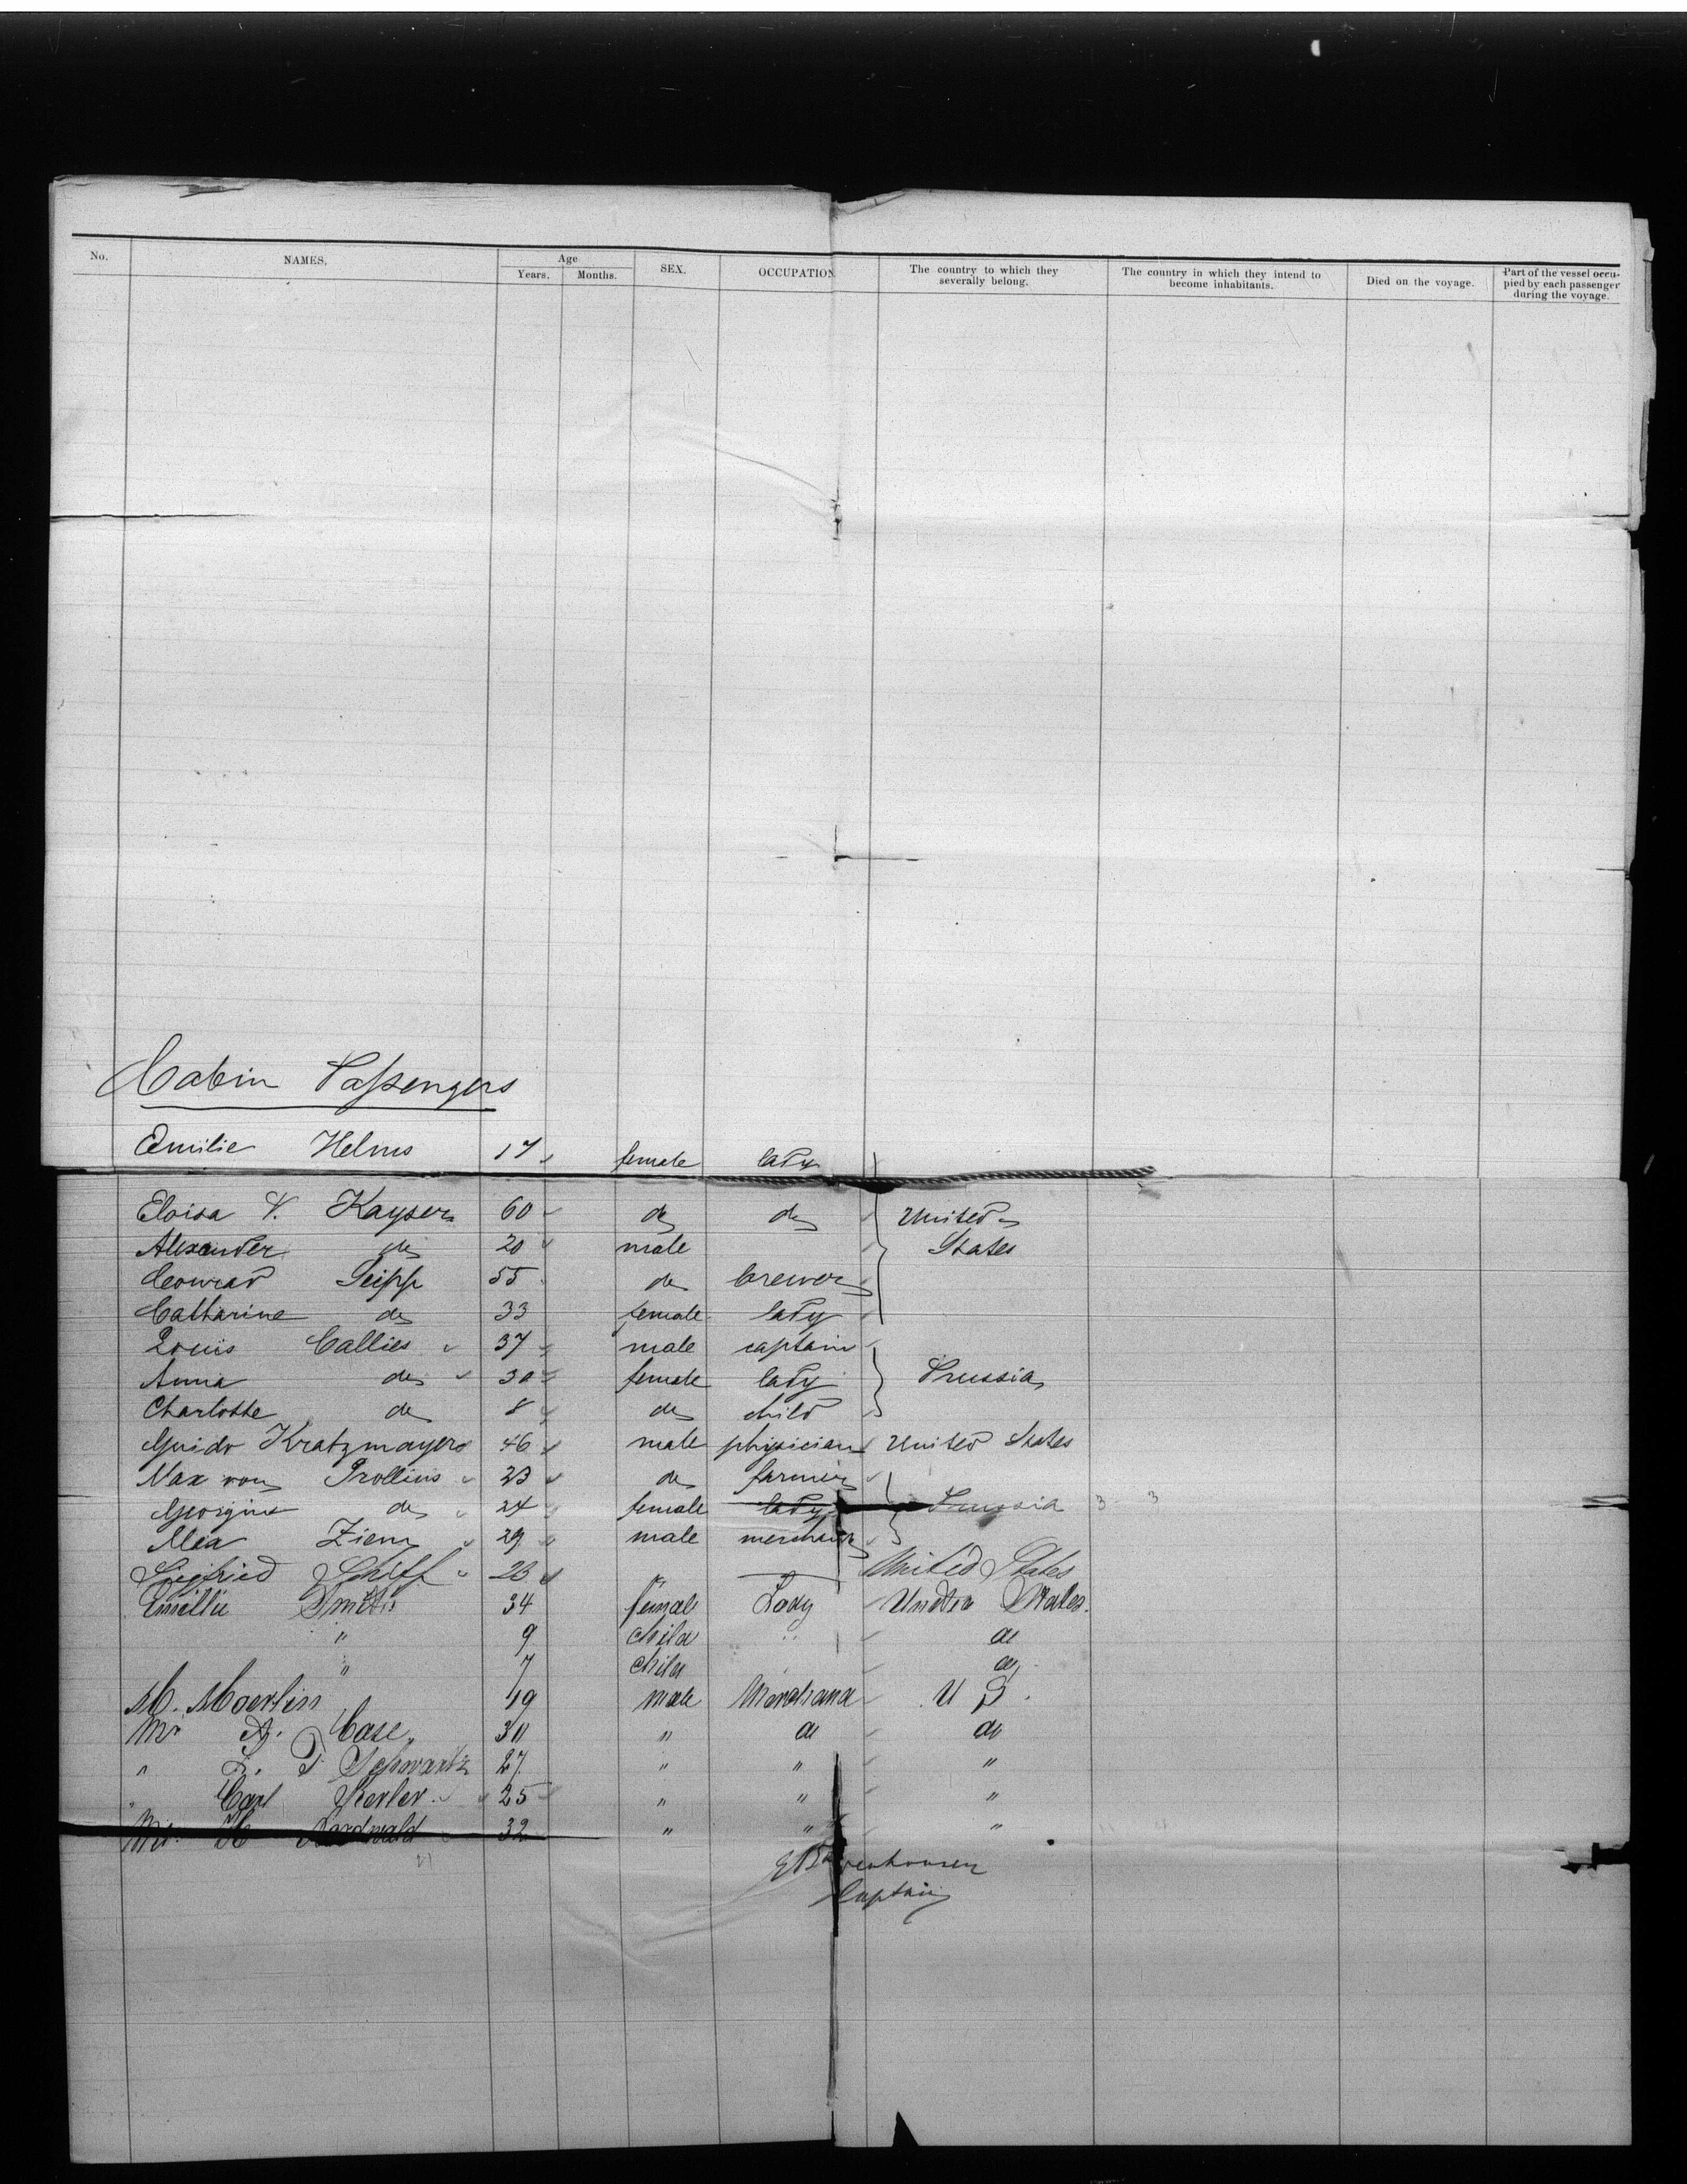 No. NAMES. Age Years. Months. SEX. OCCUPATION The country to which they severally belong. The country in which they intend to become inhabitants. Died on the voyage. Part of the vessel occupied by each passenger during the voyage.
Cabin Passengers
Emilie Helms 17 female lady
Eloisa V. Kayser 60 do do United
Alexander do 20 male States
Conrad Seipp 55 do brewer
Catharine do 33 female lady
Louis Callies 37 male captain
Anna do 30 female lady Prussia
Charlotte do 8 do child
Guido Kratzmayer 46 male physician United States
Max von Prollius 23 do farmer
Georgine do 24 female lady Prussia 3 3
Ziem 29 male merchant
Siegfried Schiff 23 " United States
Emillie Smith 34 female Lady United States.
" 9 child " do
" 7 child do
M. Moerlin 19 male Merchand U S.
Mr A. Case 30 " do do
" F. Schwartz 27 " " "
" Carl Kerler 25 " " "
Mr. H Nordwald 32 " " "
21
Captain